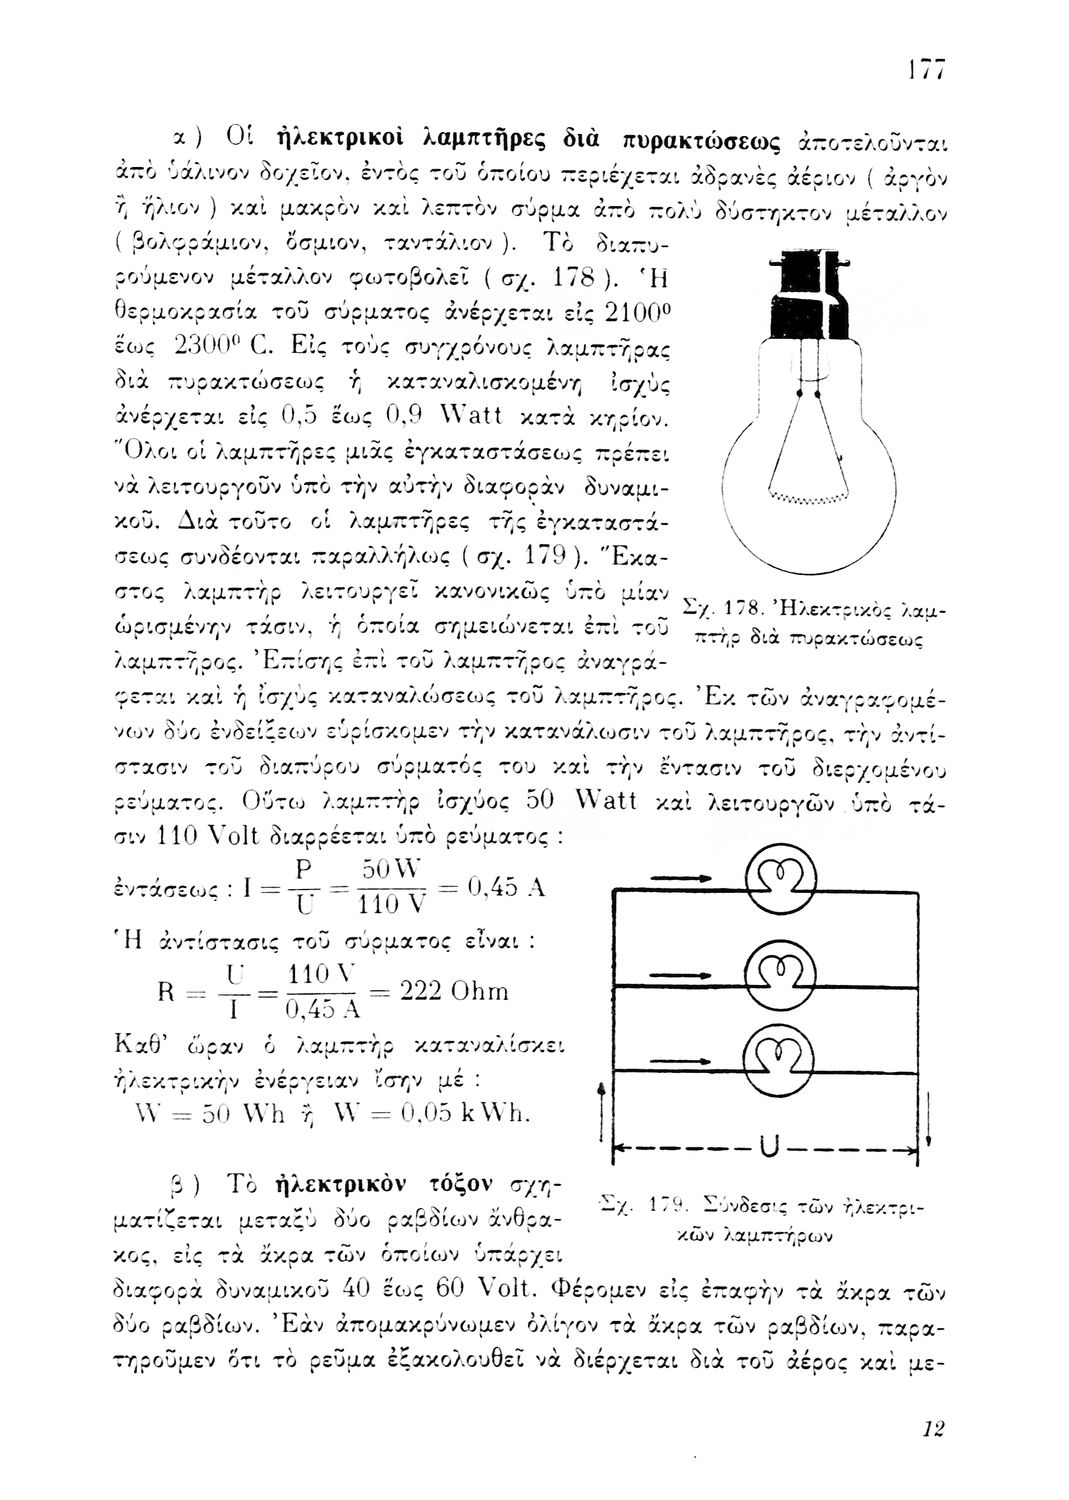 177
α ) Οἱ ἠλεκτρικοὶ λαμπτῆρες διὰ πυρακτώσεως ἀποτελοῦνται
ἀπὸ ὑάλινον δοχεῖον, ἐντὸς τοῦ ὁποίου περιέχεται ἀδρανὲς ἀέριον ( ἀργὸν
ἢ ἥλιον ) καὶ μακρὸν καὶ λεπτὸν σύρμα ἀπὸ πολὺ δύστηκτον μέταλλον
( βολφράμιον, ὄσμιον, ταντάλιον ). Τὸ διαπυ-
ρούμενον μέταλλον φωτοβολεῖ ( σχ. 178 ). Ἡ
θερμοκρασία τοῦ σύρματος ἀνέρχεται εἰς 2100⁰
ἕως 2300⁰ C. Εἰς τοὺς συγχρόνους λαμπτῆρας
διὰ πυρακτώσεως ἡ καταναλισκομένη ἰσχὺς
ἀνέρχεται εἰς 0,5 ἕως 0,9 Watt κατὰ κηρίον.
Ὅλοι οἱ λαμπτῆρες μιᾶς ἐγκαταστάσεως πρέπει
νὰ λειτουργοῦν ὑπὸ τὴν αὐτὴν διαφορὰν δυναμι-
κοῦ. Διὰ τοῦτο οἱ λαμπτῆρες τῆς ἐγκαταστά-
σεως συνδέονται παραλλήλως ( σχ. 179 ). Ἕκα-
στος λαμπτὴρ λειτουργεῖ κανονικῶς ὑπὸ μίαν
ὡρισμένην τάσιν, ἡ ὁποία σημειώνεται ἐπὶ τοῦ
λαμπτῆρος. Ἐπίσης ἐπὶ τοῦ λαμπτῆρος ἀναγρά-
φεται καὶ ἡ ἰσχὺς καταναλώσεως τοῦ λαμπτῆρος. Ἐκ τῶν ἀναγραφομέ-
νων δύο ἐνδείξεων εὑρίσκομεν τὴν κατανάλωσιν τοῦ λαμπτῆρος, τὴν ἀντί-
στασιν τοῦ διαπύρου σύρματός του καὶ τὴν ἔντασιν τοῦ διερχομένου
ρεύματος. Οὕτω λαμπτὴρ ἰσχύος 50 Watt καὶ λειτουργῶν ὑπὸ τά-
σιν 110 Volt διαρρέεται ὑπὸ ρεύματος :
ἐντάσεως : I = P/U = 50 W/110 V = 0,45 A
Ἡ ἀντίστασις τοῦ σύρματος εἶναι :
R = U/I = 110 V/0,45 A = 222 Ohm
Καθ' ὥραν ὁ λαμπτὴρ καταναλίσκει
ἠλεκτρικὴν ἐνέργειαν ἴσην μέ :
W = 50 Wh ἢ W = 0,05 kWh.
Σχ. 178. Ἠλεκτρικὸς λαμ-
πτὴρ διὰ πυρακτώσεως
U
Σχ. 179. Σύνδεσις τῶν ἠλεκτρι-
κῶν λαμπτήρων
β ) Τὸ ἠλεκτρικὸν τόξον σχη-
ματίζεται μεταξὺ δύο ραβδίων ἄνθρα-
κος, εἰς τὰ ἄκρα τῶν ὁποίων ὑπάρχει
διαφορὰ δυναμικοῦ 40 ἕως 60 Volt. Φέρομεν εἰς ἐπαφὴν τὰ ἄκρα τῶν
δύο ραβδίων. Ἐὰν ἀπομακρύνωμεν ὀλίγον τὰ ἄκρα τῶν ραβδίων, παρα-
τηροῦμεν ὅτι τὸ ρεῦμα ἐξακολουθεῖ νὰ διέρχεται διὰ τοῦ ἀέρος καὶ με-
12